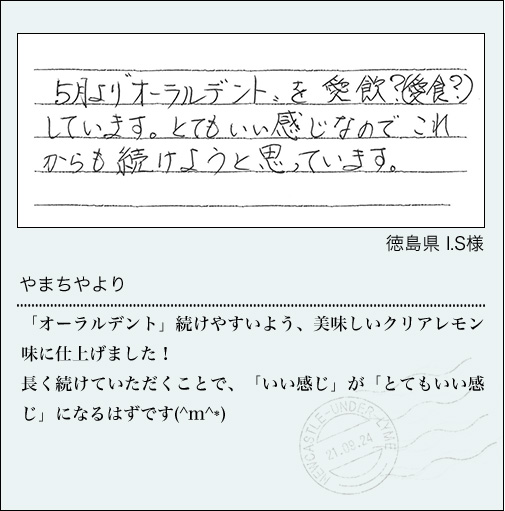 5月より"オーラルデント〟を 愛飲?(愛食?)
しています。とてもいい感じなので これ
からも続けようと思っています。
徳島県 I.S様
やまちやより
「オーラルデント」続けやすいよう、美味しいクリアレモン
味に仕上げました！
長く続けていただくことで、「いい感じ」が「とてもいい感
じ」になるはずです(^m^*)
NEWCASTLE-UNDER-LYME
21.09.24